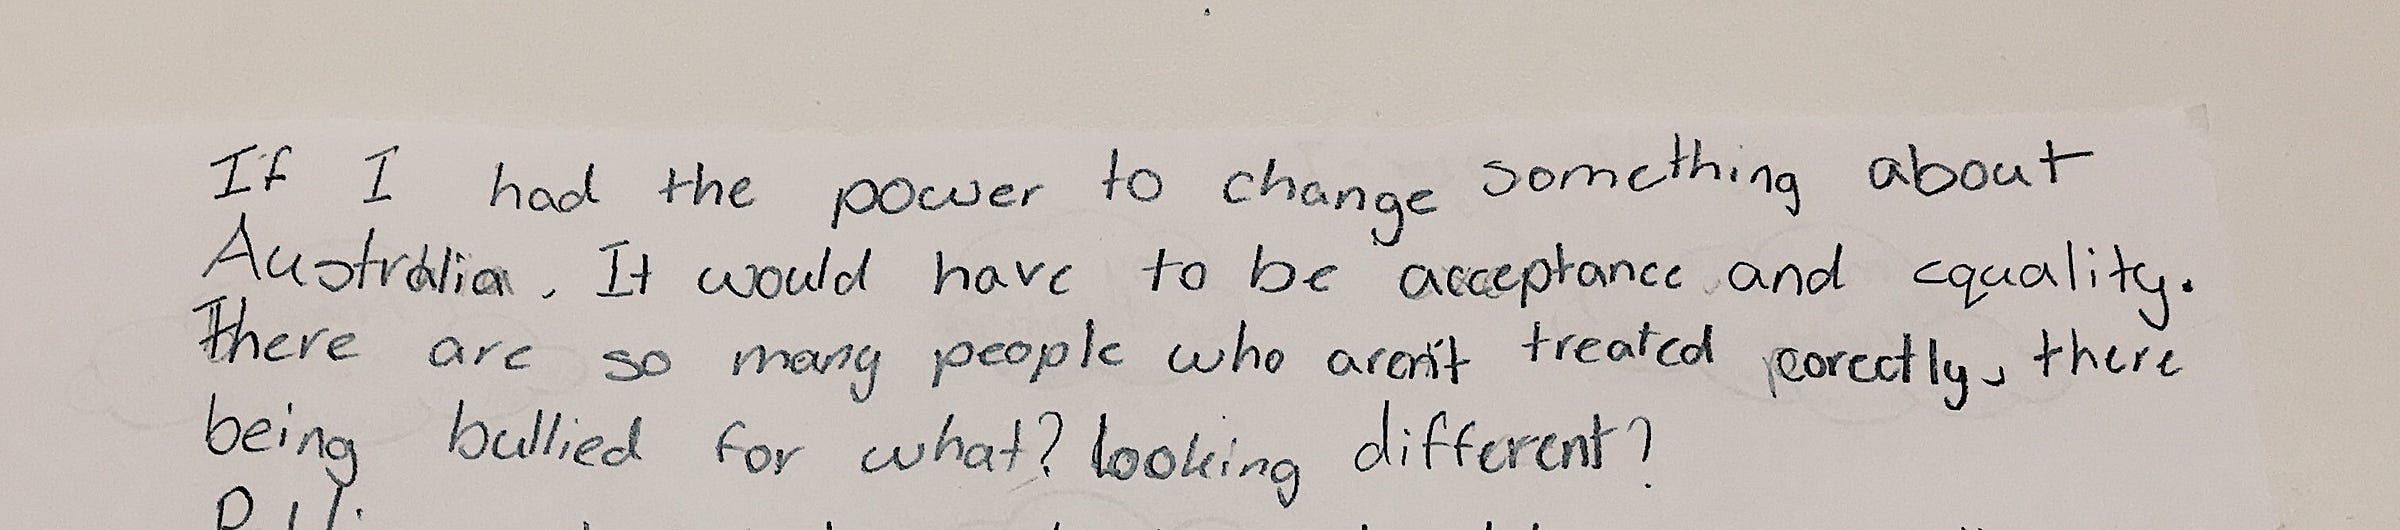 If I had the power to change something about
Australia. It would have to be acceptance and equality.
There are so many people who aren't treated corectly, there
being bullied for what? looking different?